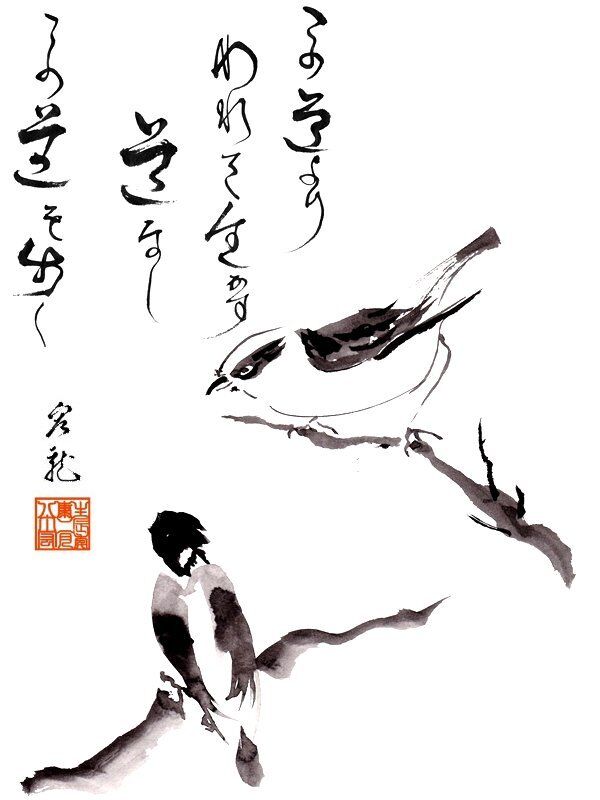 この道より
われを生かす
道なし
この道を歩く